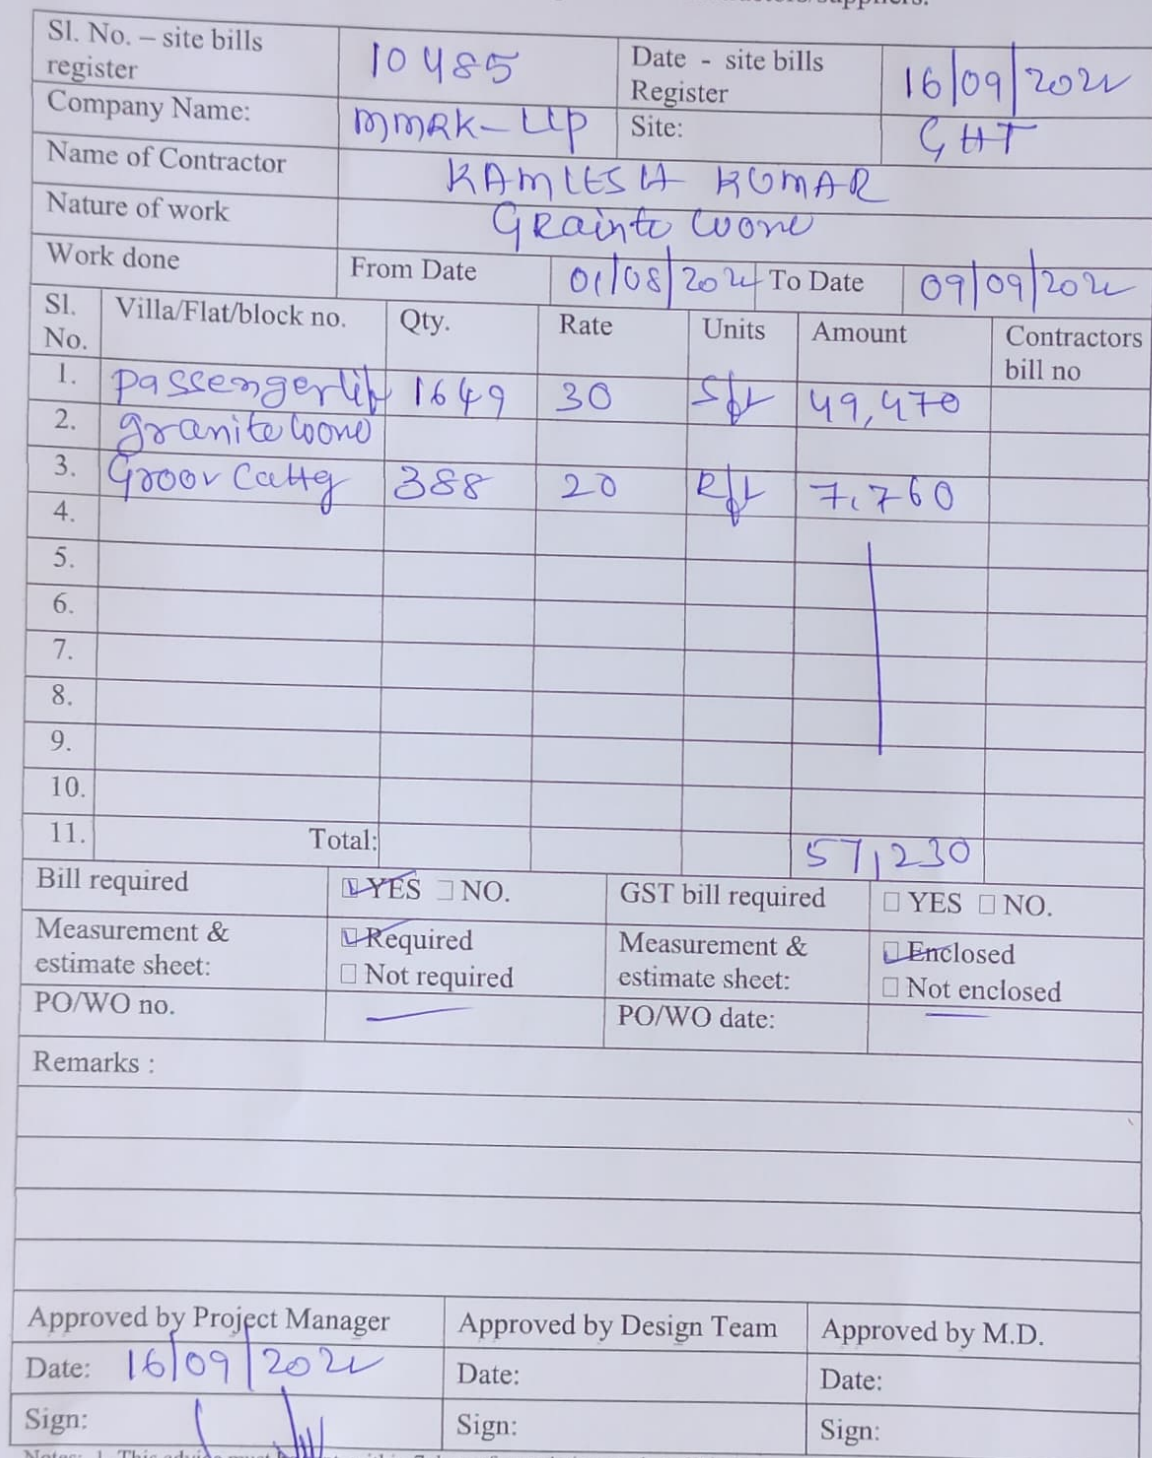 Sl. No. – site bills register 10485 Date - site bills Register 16/09/202
Company Name: MMRK-LLP Site: GHT
Name of Contractor KAMLESH KUMAR
Nature of work Grainto woone
Work done From Date 01/08/202 To Date 09/09/202
Sl. No. Villa/Flat/block no. Qty. Rate Units Amount Contractors bill no
1. passengerlif 1649 30 Sft 49,470
2. granite woone
3. Groov Cattg 388 20 Rft 7,760
4.
5.
6.
7.
8.
9.
10.
11. Total: 57,230
Bill required YES NO. GST bill required YES NO.
Measurement & estimate sheet: Required Not required Measurement & estimate sheet: Enclosed Not enclosed
PO/WO no. PO/WO date:
Remarks :
Approved by Project Manager Approved by Design Team Approved by M.D.
Date: 16/09/202 Date: Date:
Sign: Sign: Sign: